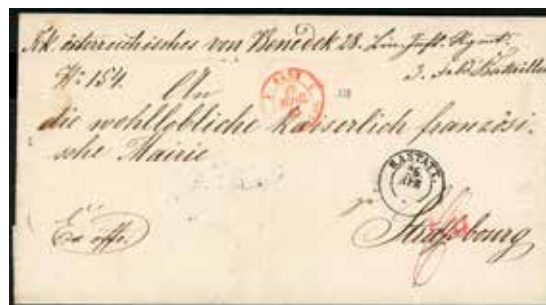 k.k. österreichisches von Benedek 28. Lin. Inft. Regmt.
No: 154.
3. Feld Bataillon
An
die wohllöbliche kaiserlich französi-
sche Mairie
RASTATT.
26
APR
Strassbourg
Ex offo.